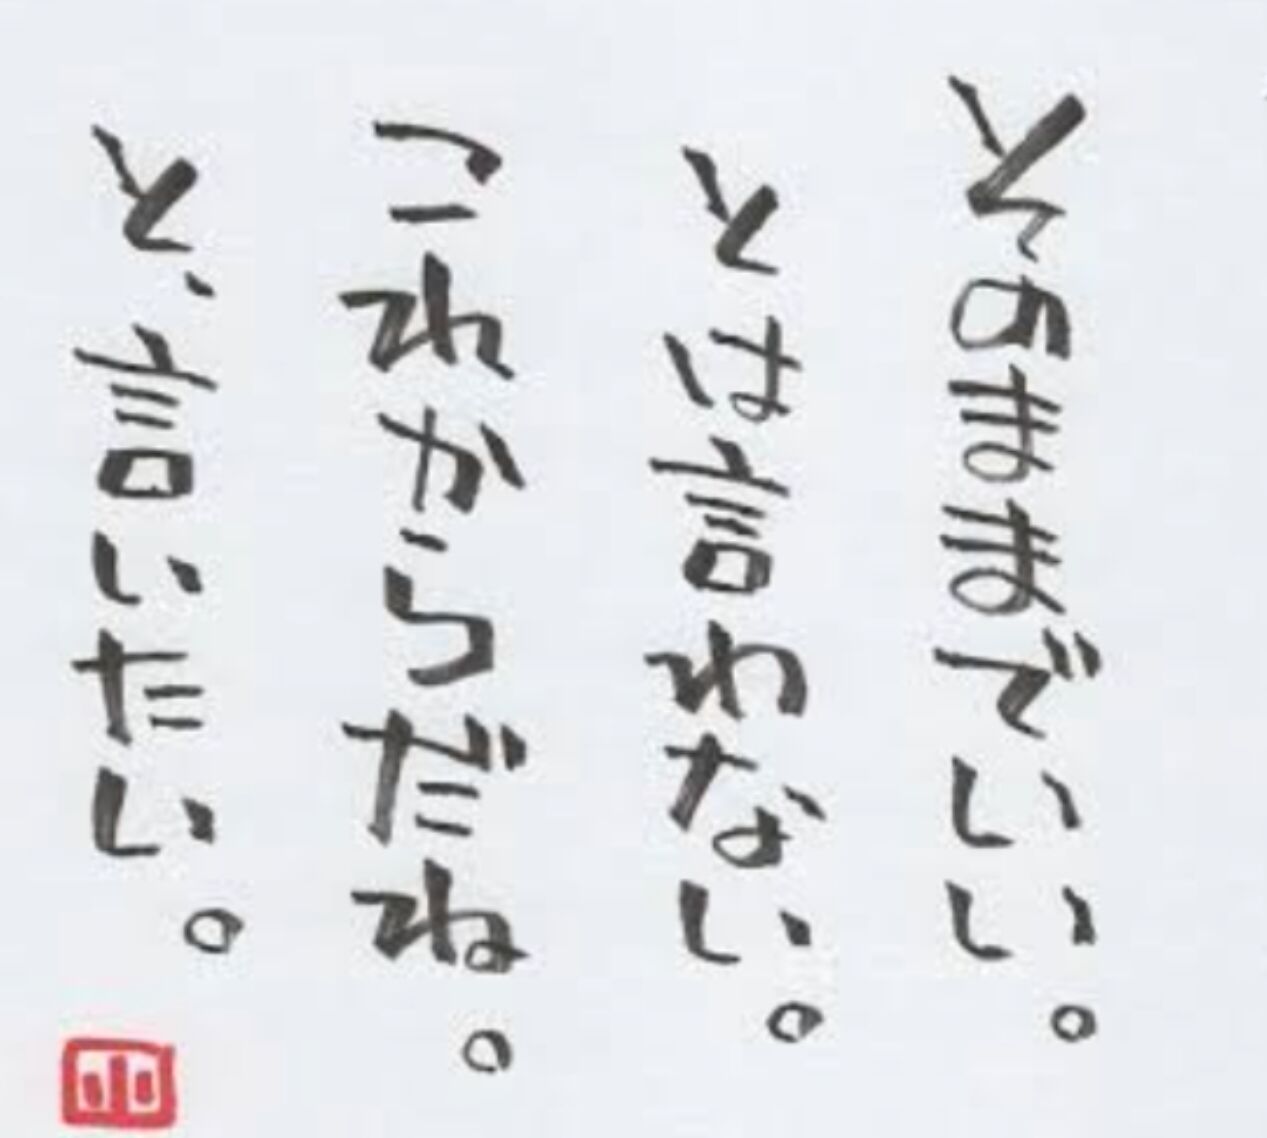 そのままでいい。
とは言わない。
これからだね。
と、言いたい。
小